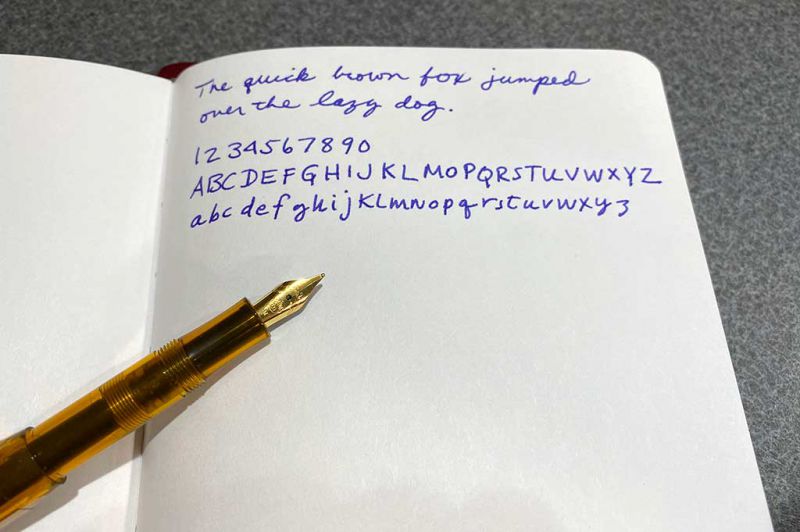 The quick brown fox jumped
over the lazy dog.
1234567890
ABCDEFGHIJKLMOPQRSTUVWXYZ
abcdefghijklmnopqrstuvwxyz